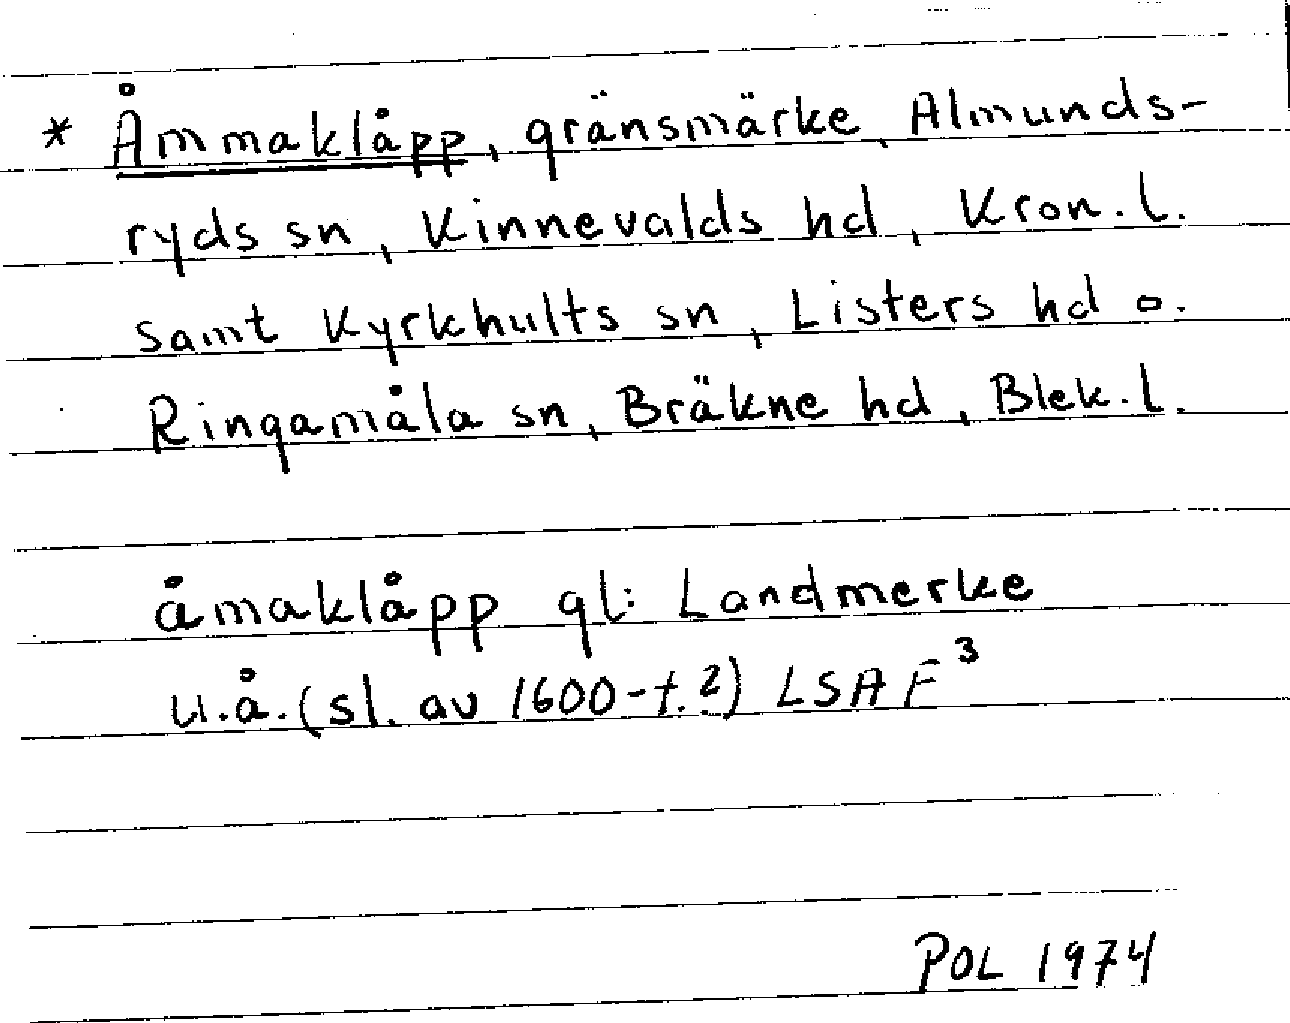 * Åmmaklåpp, gränsmärke, Almunds-
ryds sn, Kinnevalds hd, Kron. l.
samt Kyrkhults sn, Listers hd o.
Ringamåla sn, Bräkne hd, Blek. l.
åmaklåpp gl: Landmerke
u.å. (sl. av 1600-t.?) LSA F³
POL 1974